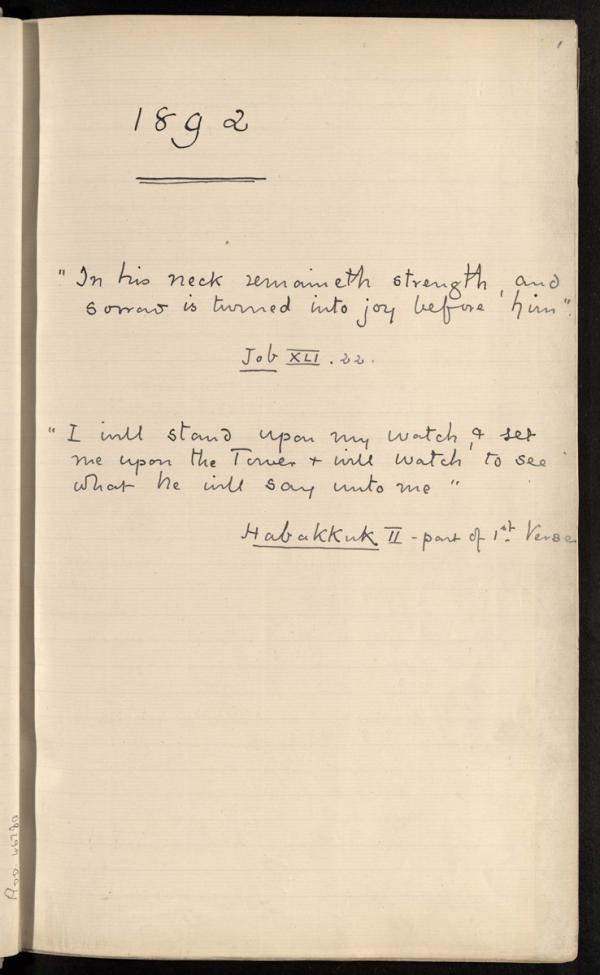 1892
"In his neck remaineth strength, and
sorrow is turned into joy before him".
Job XLI. 22.
"I will stand upon my watch, & set
me upon the Tower & will watch to see
what he will say unto me"
Habakkuk II - part of 1st. Verse